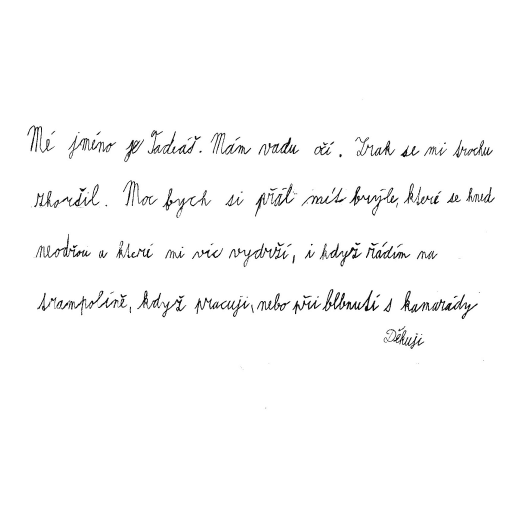 Mé jméno je Tadeáš. Mám vadu očí. Zrak se mi trochu
zhoršil. Moc bych si přál mít brýle, které se hned
neodřou a které mi víc vydrží, i když řádím na
trampolíně, když pracuji, nebo při blbnutí s kamarády
Děkuji